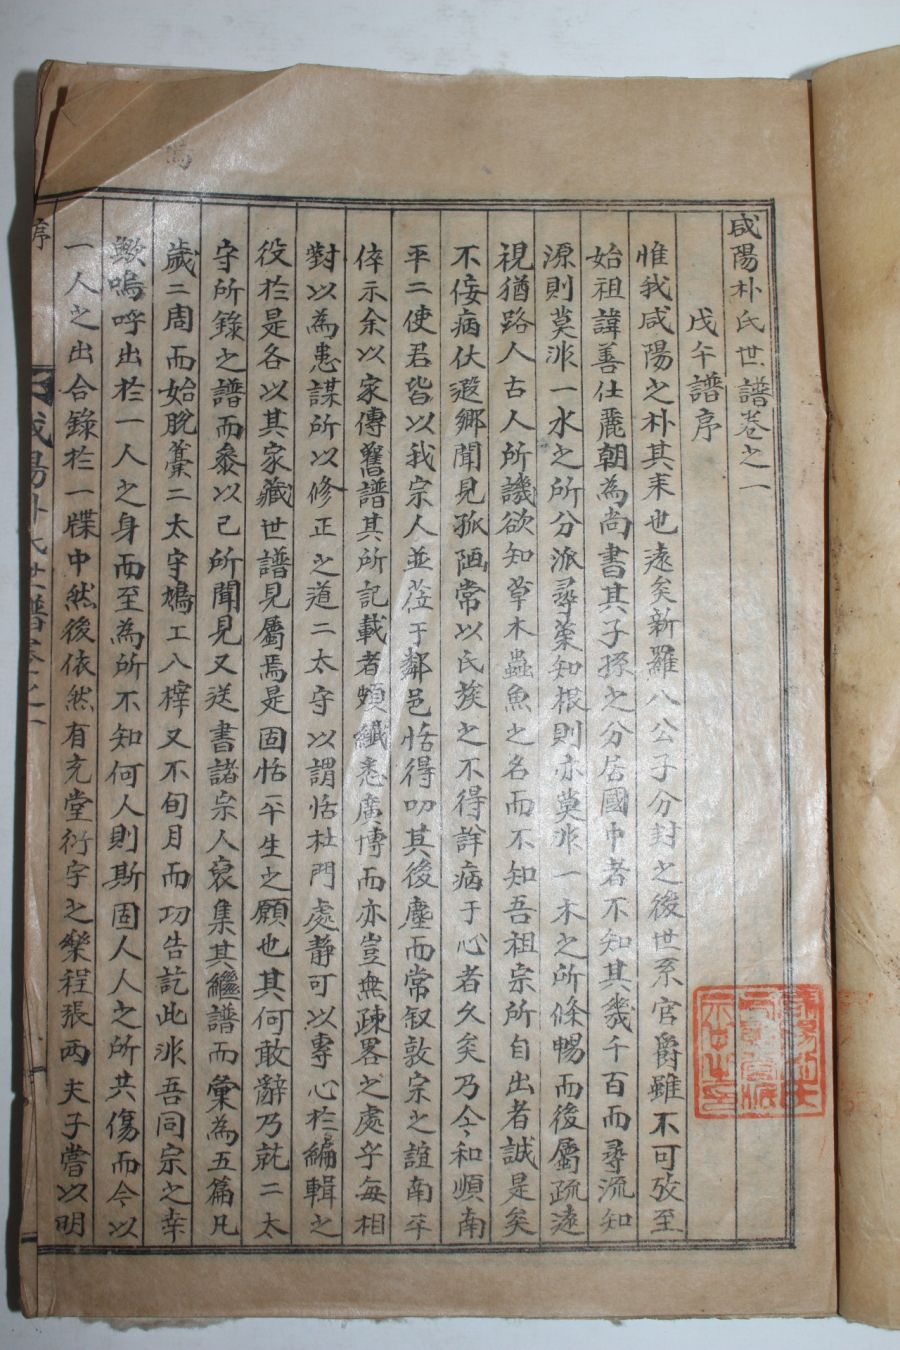 咸陽朴氏世譜卷之一
戊午譜序
惟我咸陽之朴其來也遠矣新羅八公子分封之後世系官爵雖不可攷至
始祖諱善仕麗朝為尚書其子孫之分居國中者不知其幾千百而尋流知
源則莫非一水之所分派尋葉知根則亦莫非一木之所條暢而後屬疏遠
視猶路人古人所譏欲知草木蟲魚之名而不知吾祖宗所自出者誠是矣
不佞病伏遐鄉聞見孤陋常以氏族之不得詳病于心者久矣乃今和順南
平二使君皆以我宗人並莅于鄰邑恬得叨其後塵而常叙敦宗之誼南平
倅示余以家傳舊譜其所記載者頗纖悉廣博而亦豈無疎畧之處乎每相
對以為患謀所以修正之道二太守以謂恬杜門處静可以專心於編輯之
役於是各以其家藏世譜見屬焉是固恬平生之願也其何敢辭乃就二太
守所錄之譜而叅以己所聞見又送書諸宗人裒集其繼譜而彙為五篇凡
歲二周而始脫藁二太守鳩工入榟又不旬月而功告訖此非吾同宗之幸
歟嗚呼出於一人之身而至為所不知何人則斯固人人之所共傷而今以
一人之出合錄於一牒中然後依然有充堂衍宇之樂程張兩夫子嘗以明
咸陽朴氏世譜卷之一
序